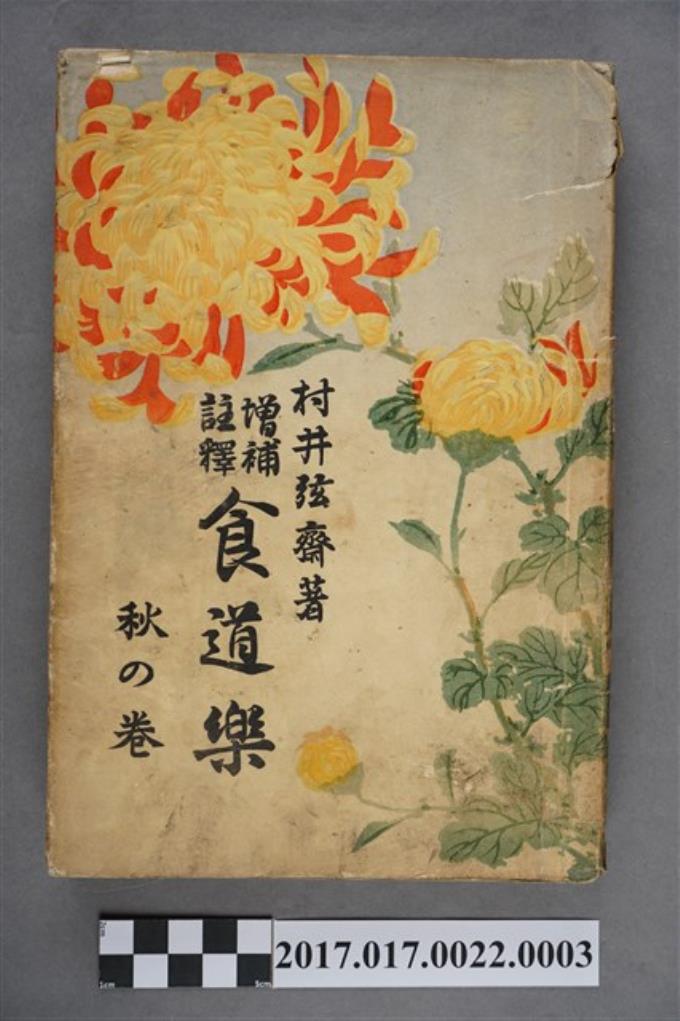 村井弦齋著
增補
註釋
食道樂
秋の卷
2017.017.0022.0003
2cm
1cm
5cm